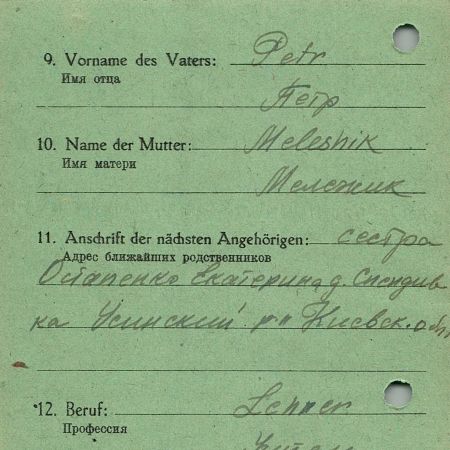 9. Vorname des Vaters: Petr
Имя отца
Петр
10. Name der Mutter: Meleshik
Имя матери
Мележик
11. Anschrift der nächsten Angehörigen: сестра
Адрес ближайших родственников
Остапенко Екатерина д.
ка р-н Киевск. обл
12. Beruf: Lehrer
Профессия